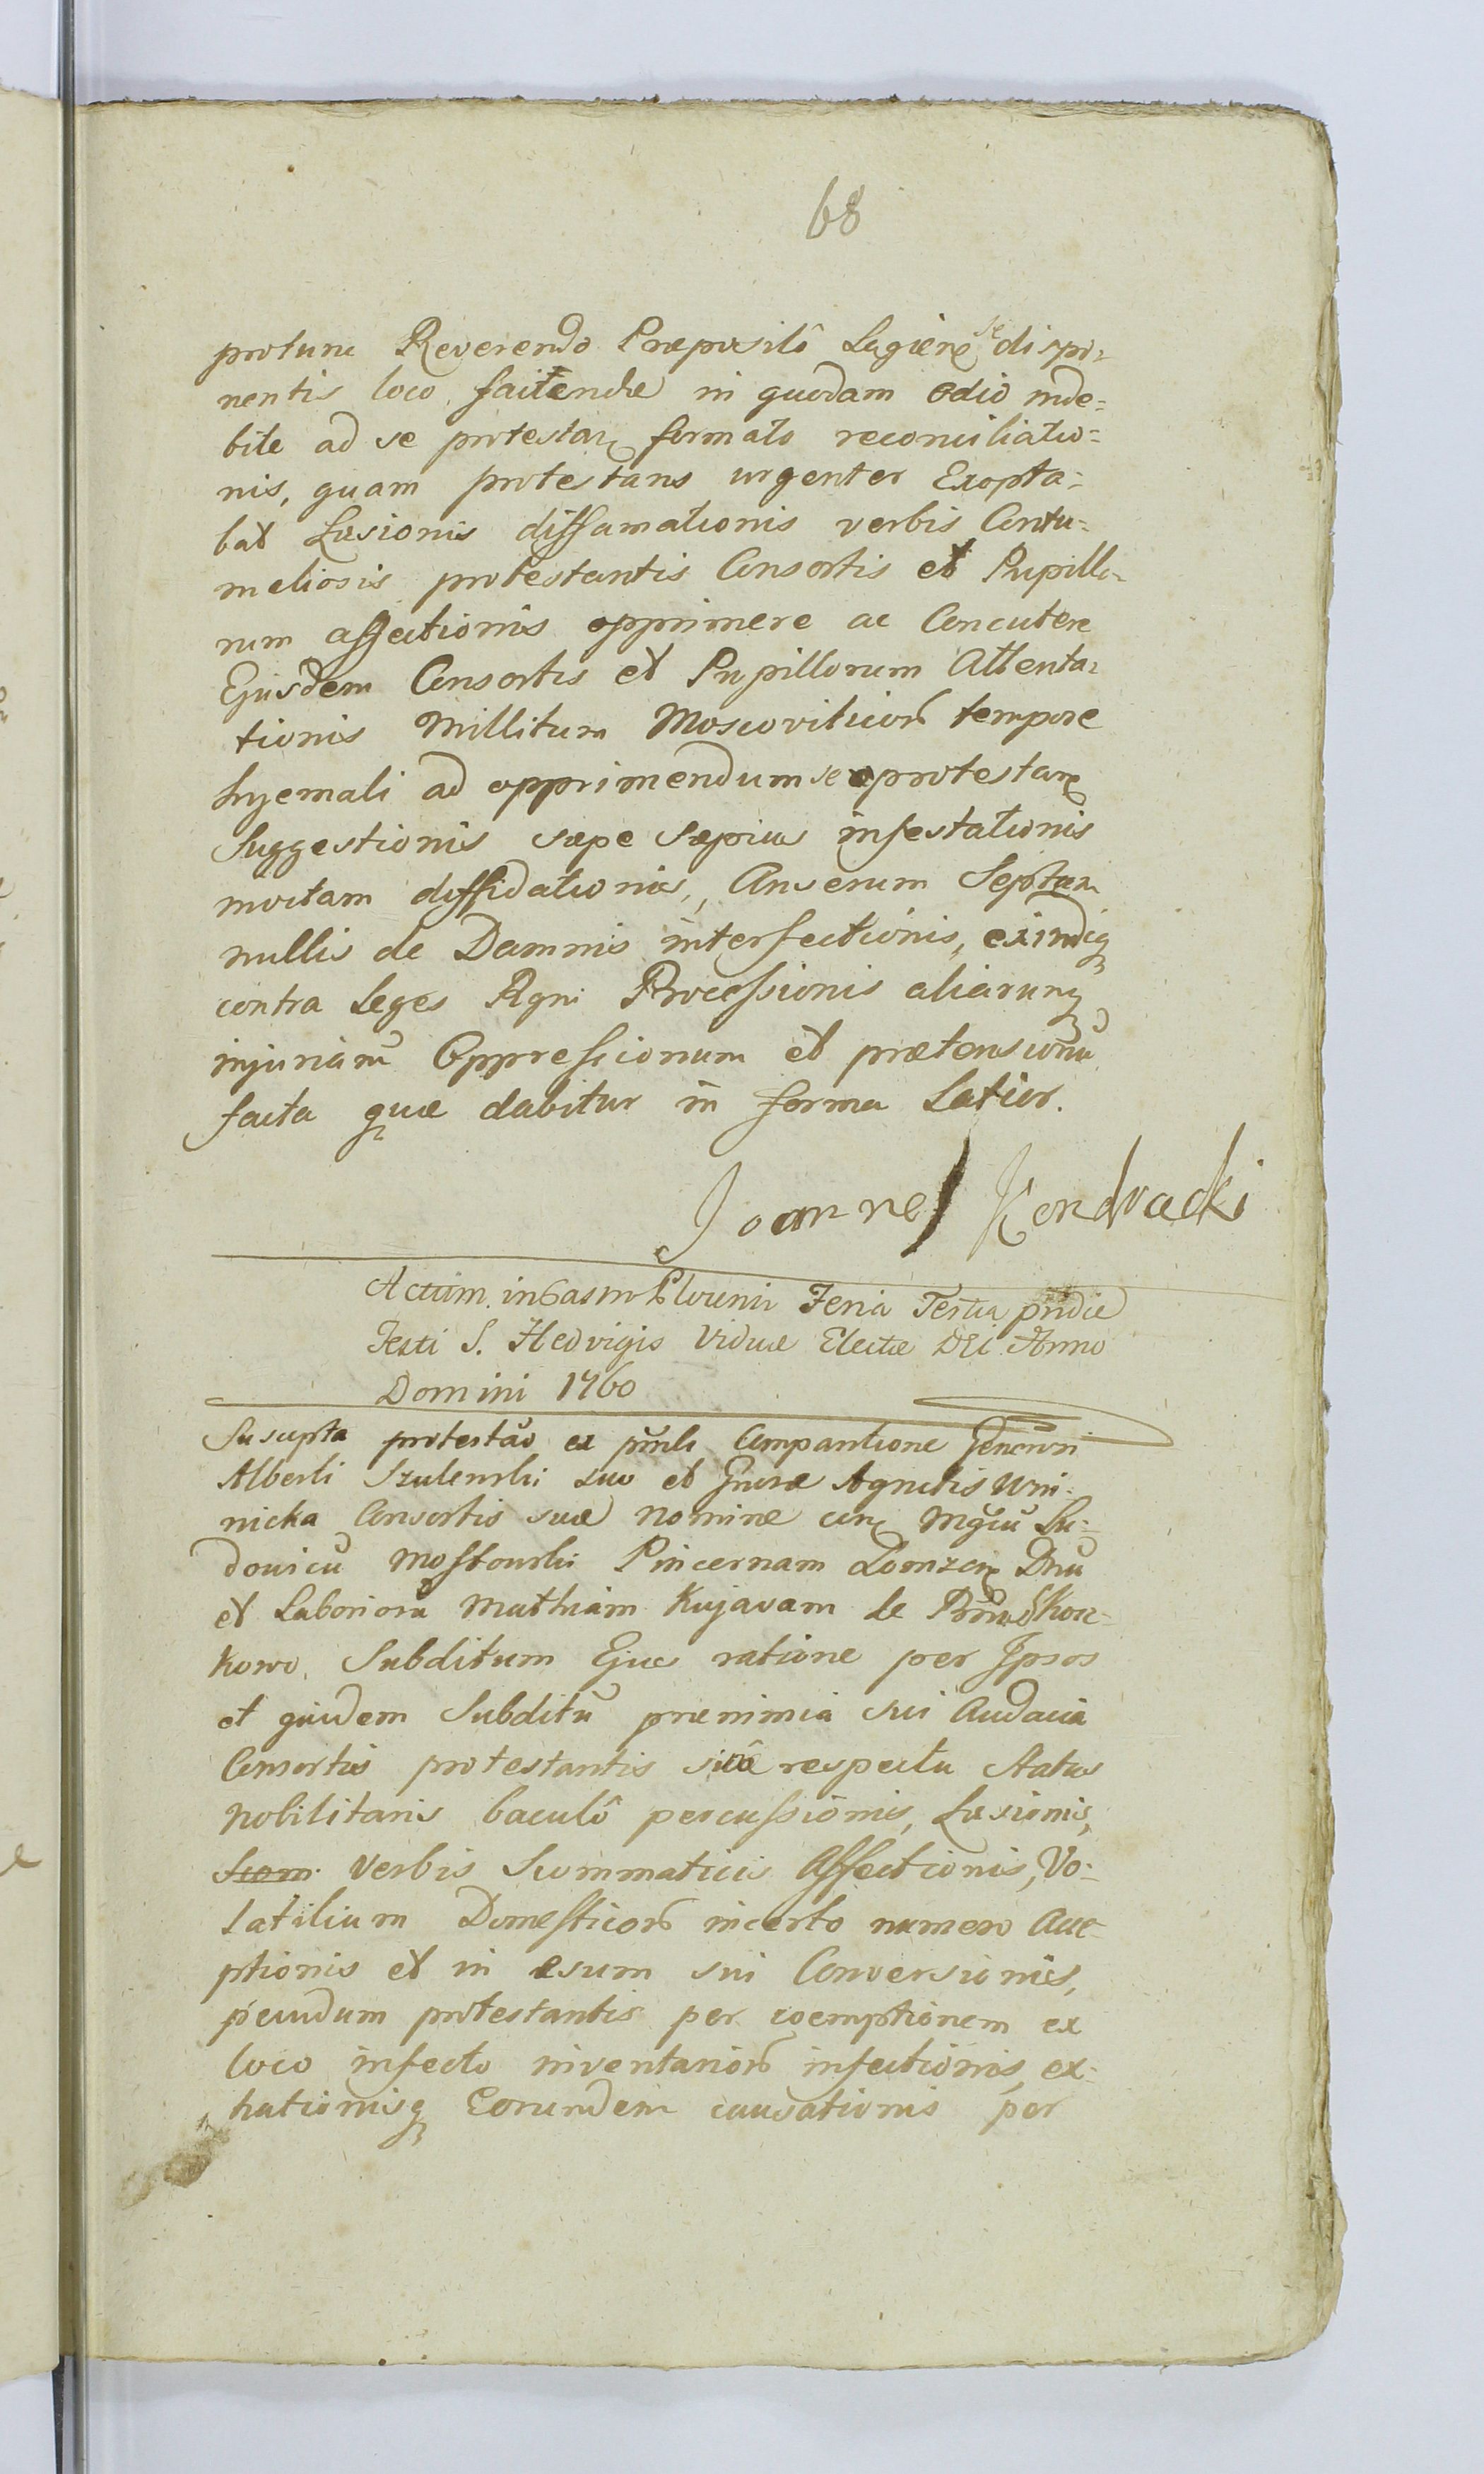 68
protunc Reverendo Præpositô Lagiene se dispo-
nentis loco faciendæ in quodam odio inde-
bite ad se protestan formato reconciliatio-
nis, quam protestans urgenter Exopta-
bat Læsionis diffamationis verbis Contu-
meliosis protestantis Consortis et Pupillo-
rum affectionis opprimere ac Concutere
Ejusdem Consortis et Pupillorum Attenta-
tionis Millitum Moscoviticorũ tempore
hyemali ad opprimendum se protestan
Suggestionis sæpe Sæpius infestationis
mortam diffidationis, Anserum Septem
nullis de Damnis interfectionis, exindeq
contra Leges Rgni Processionis aliarumq
injuriarũ Oppressionum et prætensionũ
facta quæ dabitur in forma Latior.
Joannes Kendracki
Actum in Castro Plocensi Feria Tertia pridie
Festi S. Hedvigis Viduæ Electæ DEI Anno
Domini 1760
Suscepta protestao ex pnli Comparitione Generosi
Alberti Szulenski suo et Gnosæ Agnetis Wni-
nicka Consortis suæ nomine con Mgcũ Lu-
dovicũ Mostowski Pincernam Lomzen Dnũ
et Laboriosũ Mathiam Kujavam de Kon-
kowo Subditum Ejus ratione per Ipsos
et quidem Subditũ prænimia sui Audacia
Consortis protestantis sine respectu status
Nobilitaris baculô percussionis, Læsionis,
Scom verbis Scommaticis Affectionis, Vo-
latilium Domesticorũ incerto numero Acce-
ptionis et in esum sui Conversionis,
pecudum protestantis per coemptionem ex
loco infecto inventariorũ infectionis, ex-
hationisq Eorumdem causationis per